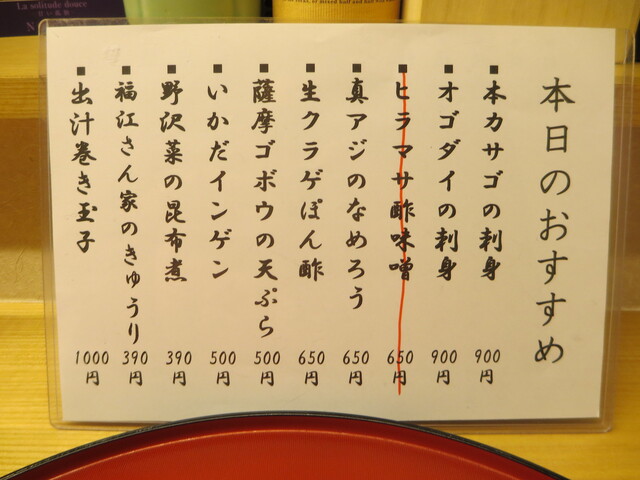 La solitude douce
本日のおすすめ
■本カサゴの刺身 900円
■オゴダイの刺身 900円
■ヒラマサ酢味噌 650円
■真アジのなめろう 650円
■生クラゲぽん酢 650円
■薩摩ゴボウの天ぷら 500円
■いかだインゲン 500円
■野沢菜の昆布煮 390円
■福江さん家のきゅうり 390円
■出汁巻き玉子 1000円